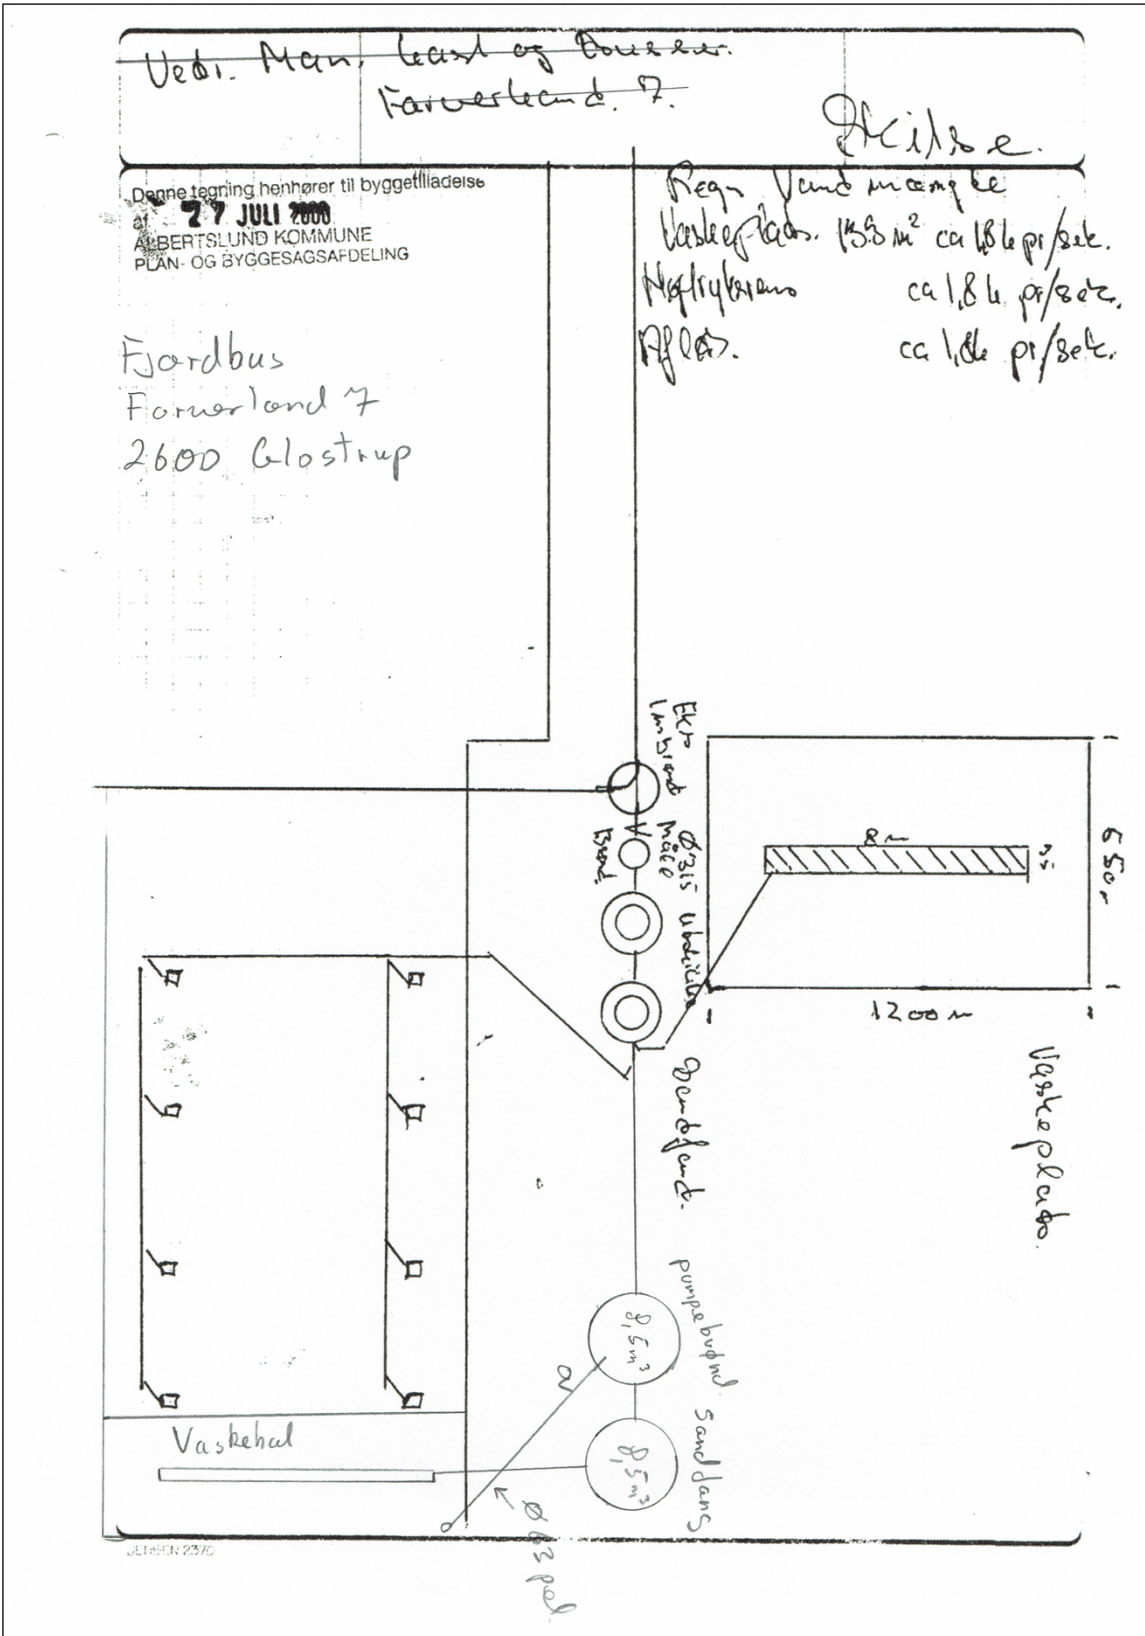 Vedr. Man, last og busser.
Farverland. 7.
Skitse.
Denne tegning henhører til byggetilladelse
af 27 JULI 2000
ALBERTSLUND KOMMUNE
PLAN- OG BYGGESAGSAFDELING
Regn Vand mængde
Vaskeplads. ca 1,8 l. pr/sek.
ca 1,8 l. pr/sek.
Afløb. ca 1,8 l. pr/sek.
Fjordbus
Farverland 7
2600 Glostrup
Brønd
Ø315
8 m
1200 m
Vaskeplads.
Sandfand.
pumpebrønd
8,5 m³
sandfang
8,5 m³
Vaskehal
Ø 63 pel
JENSEN 2370